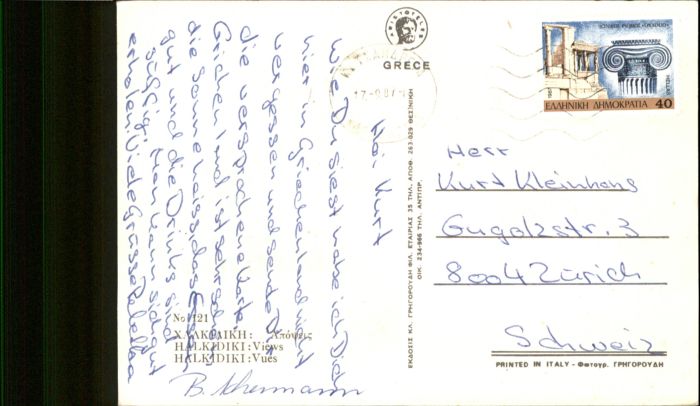 ARISTOTELES
GRECE
17-9.87
Hoi Kurt
Wie Du siest habe ich Dich
hier in Griechenland nicht
vergessen und sende Dir
die versprochene Karte.
Griechenland ist sehr schön
die Sonne heiss, das Essen
gut und die Drinks sind
süffig. Man kann sich gut
erholen. Viele Grüsse
B.
No 121
ΧΑΛΚΙΔΙΚΗ: Ἀπόψεις
HALKIDIKI: Views
HALKIDIKI: Vues
ΕΚΔΟΣΙΣ ΚΛ. ΓΡΗΓΟΡΟΥΔΗ ΦΙΛ. ΕΤΑΙΡΙΑΣ 35 ΤΗΛ. ΑΠΟΘ. 263.029 ΘΕΣ/ΝΙΚΗ
ΟΙΚ. 234-966 ΤΗΛ. ΑΝΤΙΠΡ.
ΙΩΝΙΚΟΣ ΡΥΘΜΟΣ
1987
ΕΛΛΗΝΙΚΗ ΔΗΜΟΚΡΑΤΙΑ 40
Herr
Kurt Kleinhans
Gugolzstr. 3
8004 Zürich
Schweiz
PRINTED IN ITALY - Φωτογρ. ΓΡΗΓΟΡΟΥΔΗ